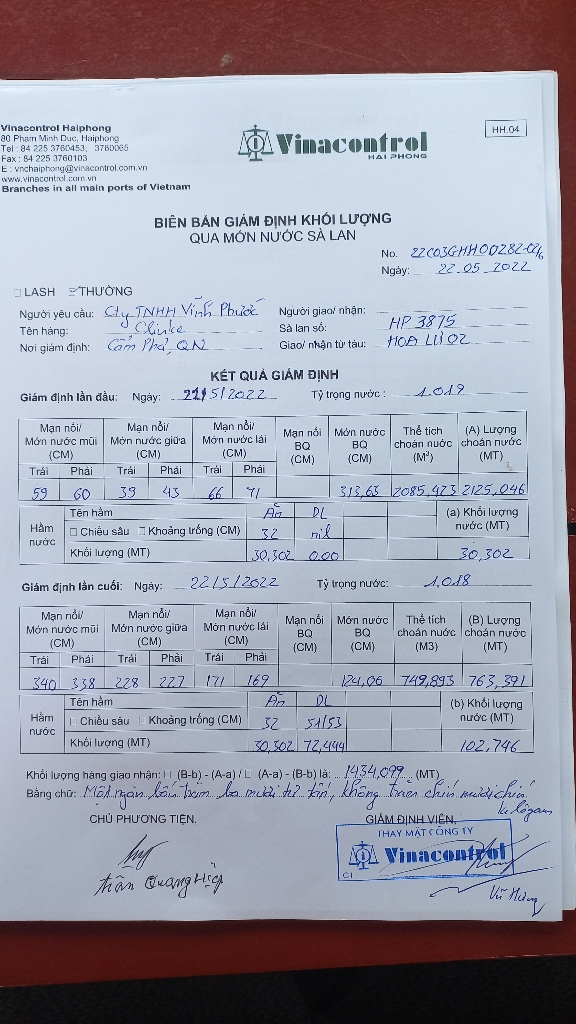 Vinacontrol Haiphong
80 Pham Minh Duc, Haiphong
Tel : 84 225 3760453; 3760065
Fax : 84 225 3760103
E : vnchaiphong@vinacontrol.com.vn
www.vinacontrol.com.vn
Branches in all main ports of Vietnam
Vinacontrol
HAI PHONG
HH.04
BIÊN BẢN GIÁM ĐỊNH KHỐI LƯỢNG
QUA MỚN NƯỚC SÀ LAN
No. 22C03GHH00282-02/6
Ngày: 22.05.2022
☐ LASH ☑ THƯỜNG
Người yêu cầu: Cty TNHH Vĩnh Phước Người giao/ nhận:
Tên hàng: Clinke Sà lan số: HP 3875
Nơi giám định: Cẩm Phả, QN Giao/ nhận từ tàu: HOA LƯ 02
KẾT QUẢ GIÁM ĐỊNH
Giám định lần đầu: Ngày: 22/5/2022 Tỷ trọng nước : 1.019
Mạn nổi/ Mớn nước mũi (CM) Mạn nổi/ Mớn nước giữa (CM) Mạn nổi/ Mớn nước lái (CM) Mạn nổi BQ (CM) Mớn nước BQ (CM) Thể tích choán nước (M³) (A) Lượng choán nước (MT)
Trái Phải Trái Phải Trái Phải
59 60 39 43 66 71 313,63 2085,473 2125,046
Hầm nước Tên hầm Ăn DL (a) Khối lượng nước (MT)
☐ Chiều sâu ☐ Khoảng trống (CM) 32 nil
Khối lượng (MT) 30,302 0.00 30,302
Giám định lần cuối: Ngày: 22/5/2022 Tỷ trọng nước: 1,018
Mạn nổi/ Mớn nước mũi (CM) Mạn nổi/ Mớn nước giữa (CM) Mạn nổi/ Mớn nước lái (CM) Mạn nổi BQ (CM) Mớn nước BQ (CM) Thể tích choán nước (M3) (B) Lượng choán nước (MT)
Trái Phải Trái Phải Trái Phải
340 338 228 227 171 169 124,06 749,893 763,391
Hầm nước Tên hầm Ăn DL (b) Khối lượng nước (MT)
☐ Chiều sâu ☐ Khoảng trống (CM) 32 51/53
Khối lượng (MT) 30,302 72,444 102,746
Khối lượng hàng giao nhận: ☐ (B-b) - (A-a) / ☐ (A-a) - (B-b) là: 1434,099 (MT)
Bằng chữ: Một ngàn bốn trăm ba mươi tư tấn, không trăm chín mươi chín
ki lôgam
CHỦ PHƯƠNG TIỆN, GIÁM ĐỊNH VIÊN,
THAY MẶT CÔNG TY
Vinacontrol
CI
Trần Quang Hiệp
Vũ Hùng